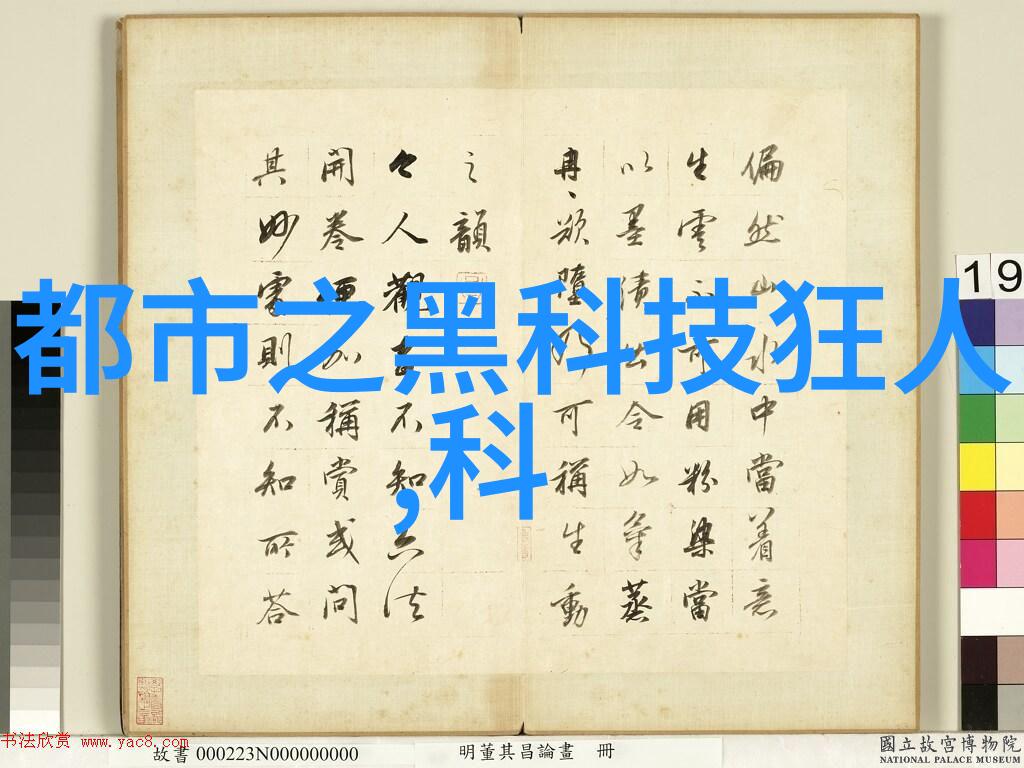 偏然山水中當着意
生雲不可用粉染當
以墨漬出令如氣蒸
冉冉欲墮乃可稱生動
之韻
今人觀畫不知六法
開卷便加稱賞或問
其妙處則不知所答
都市之黑科技狂人
,科
19
书法欣赏 www.yac8.com
故書 000223N000000000
明董其昌論畫 冊
國立故宮博物院
NATIONAL PALACE MUSEUM